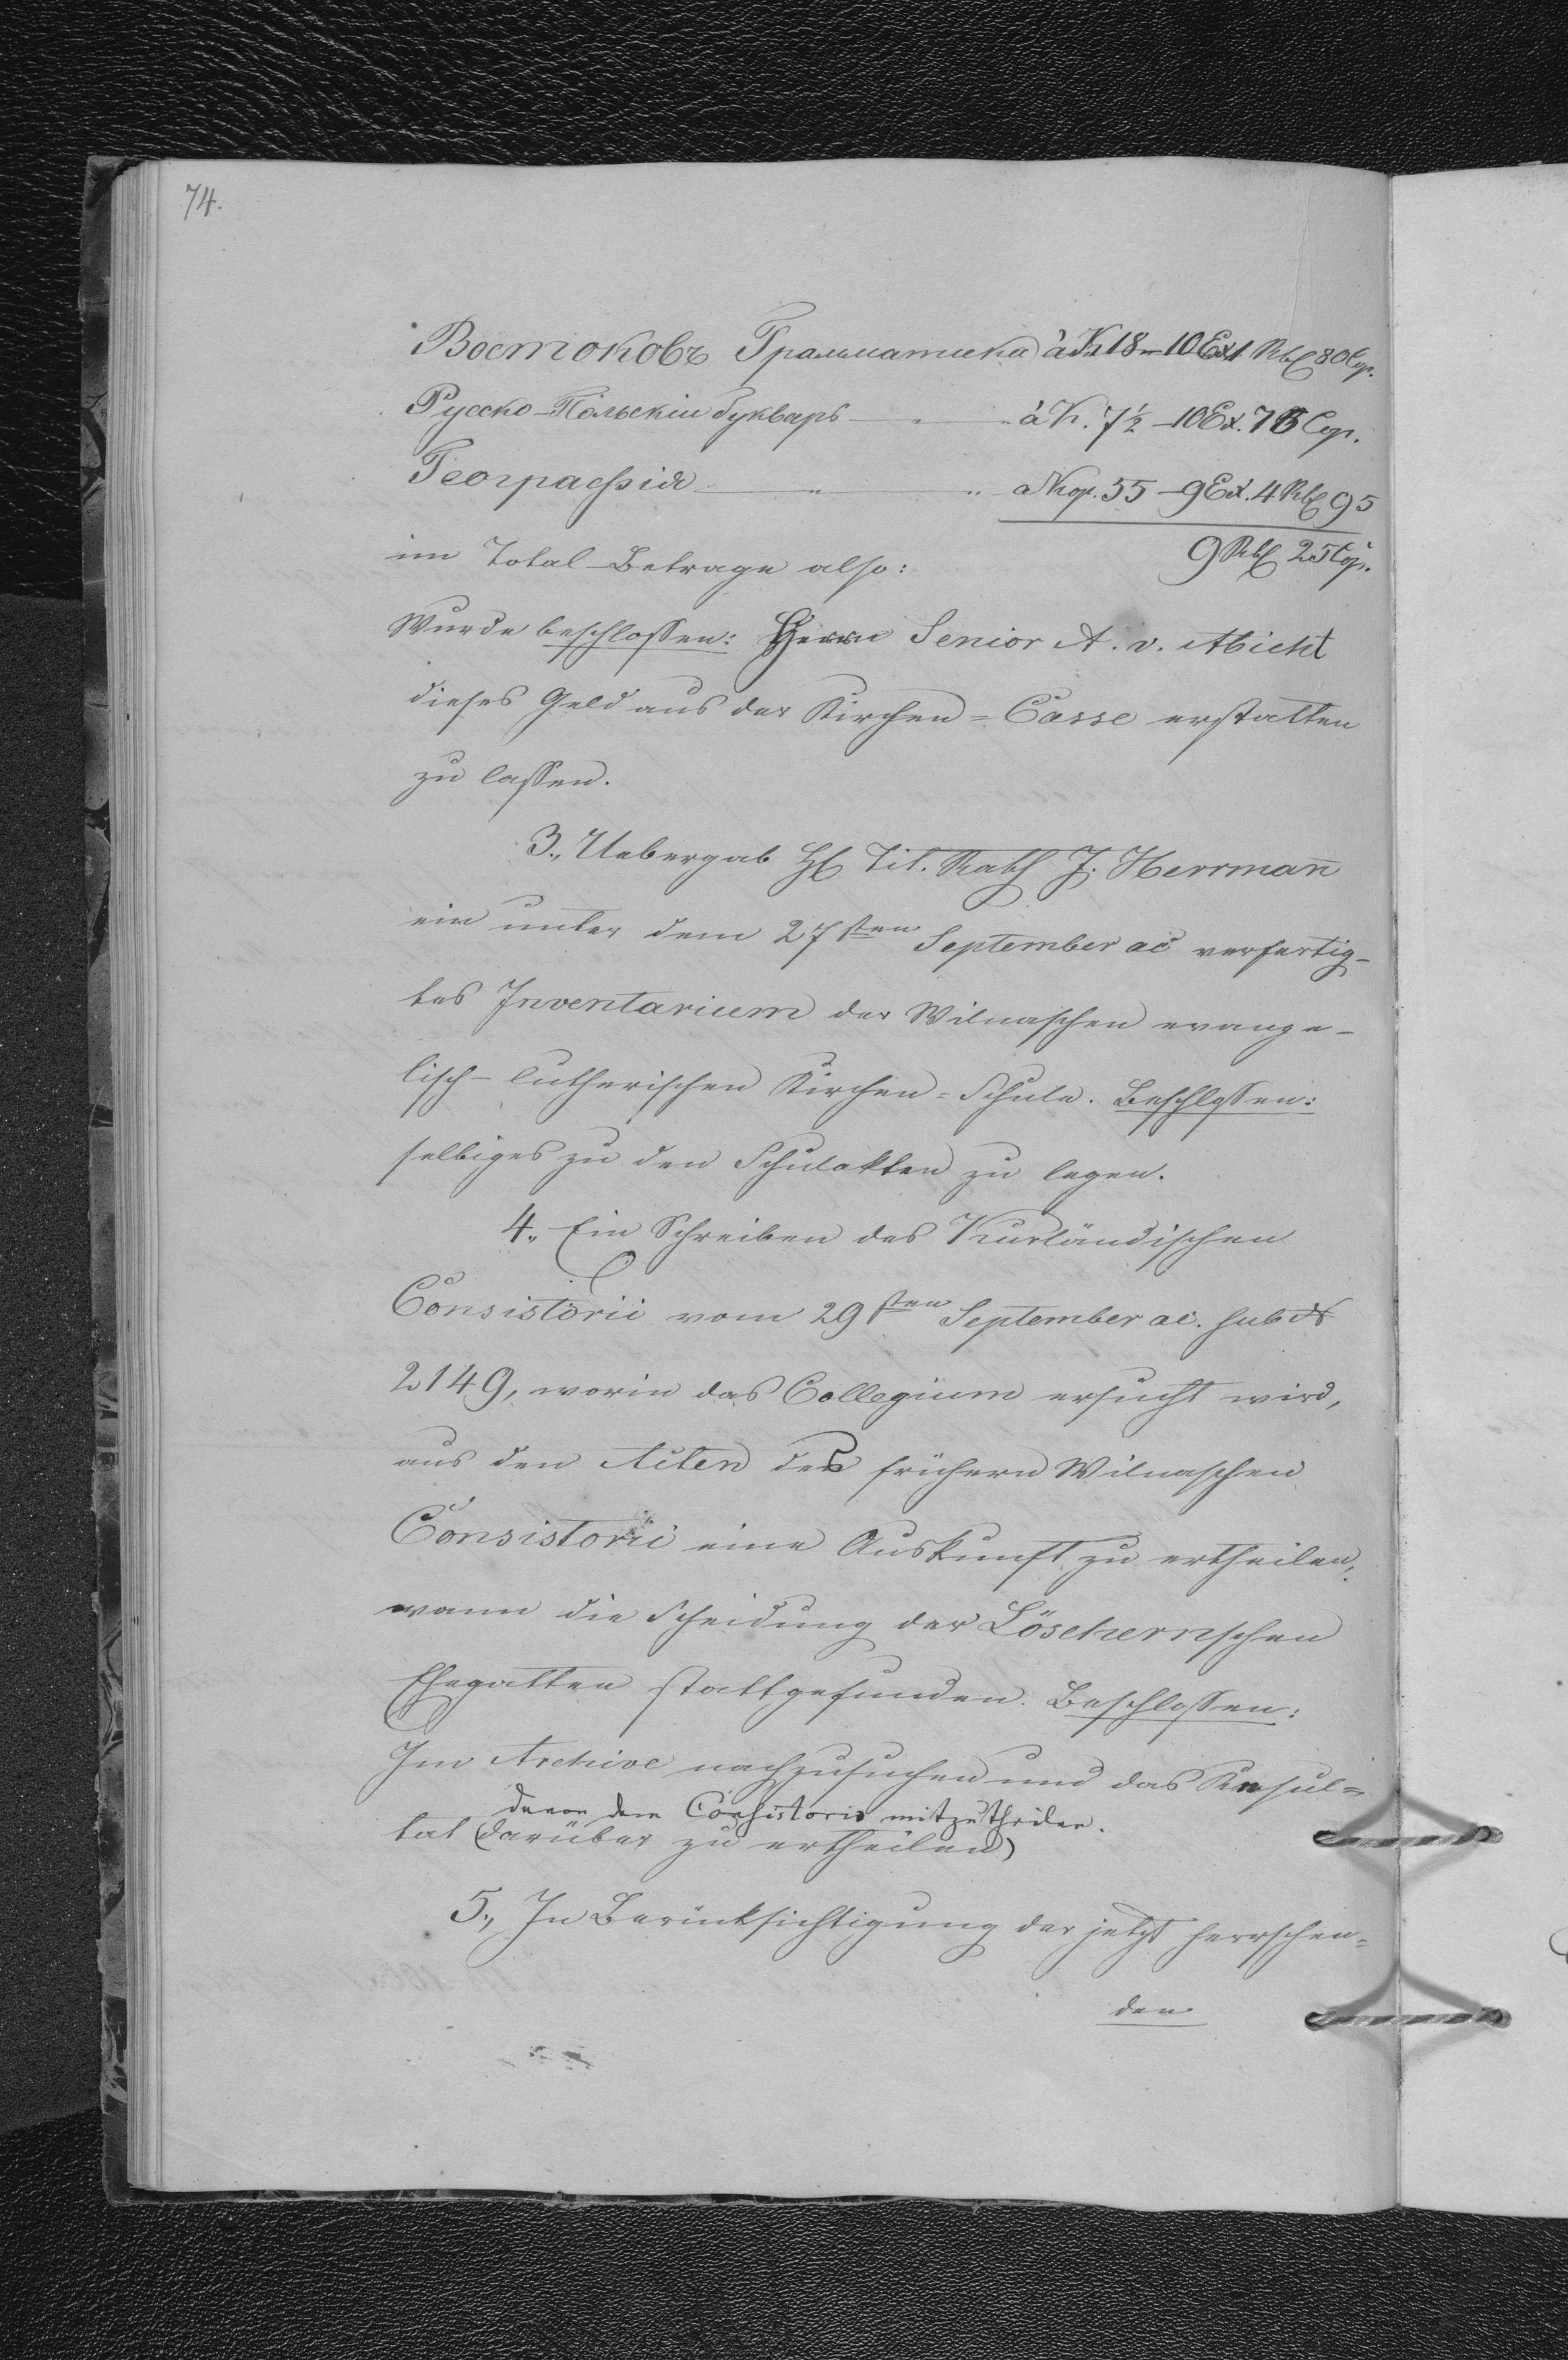 74.
Востоковъ Грамматика à K 18 – 10 Ex. 1 Rbl 80 Cop.
Русско-Польскій букварь — " — " à K. 7½ – 10 Ex. 75 Cop.
Географія — " — " à Kop. 55 – 9 Ex. 4 Rbl 95
im Total-Betrage also: 9 Rbl 25 Cop.
Wurde beschlossen: Herrn Senior A. v. Abicht
dieses Geld aus der Kirchen=Casse erstatten
zu lassen.
3., Uebergab H. Tit. Rath J. Herrman̅
ein unter dem 27sten September ac verfertig-
tes Inventarium der Wilnaschen evange-
lisch-lutherischen Kirchen=Schule. Beschlossen:
selbiges zu den Schulakten zu legen.
4., Ein Schreiben des Kurländischen
Consistorii vom 29sten September ac. sub №
2149, worin das Collegium ersucht wird,
aus den Acten des frühern Wilnaschen
Consistorii eine Auskunft zu ertheilen,
wann die Scheidung der Löschernschen
Ehegatten stattgefunden. Beschlossen:
Im Archive nachzusuchen und das Resul=
davon dem Consistorio mitzutheilen.
tat (darüber zu ertheilen)
5., In Berücksichtigung der jetzt herrschen=
den